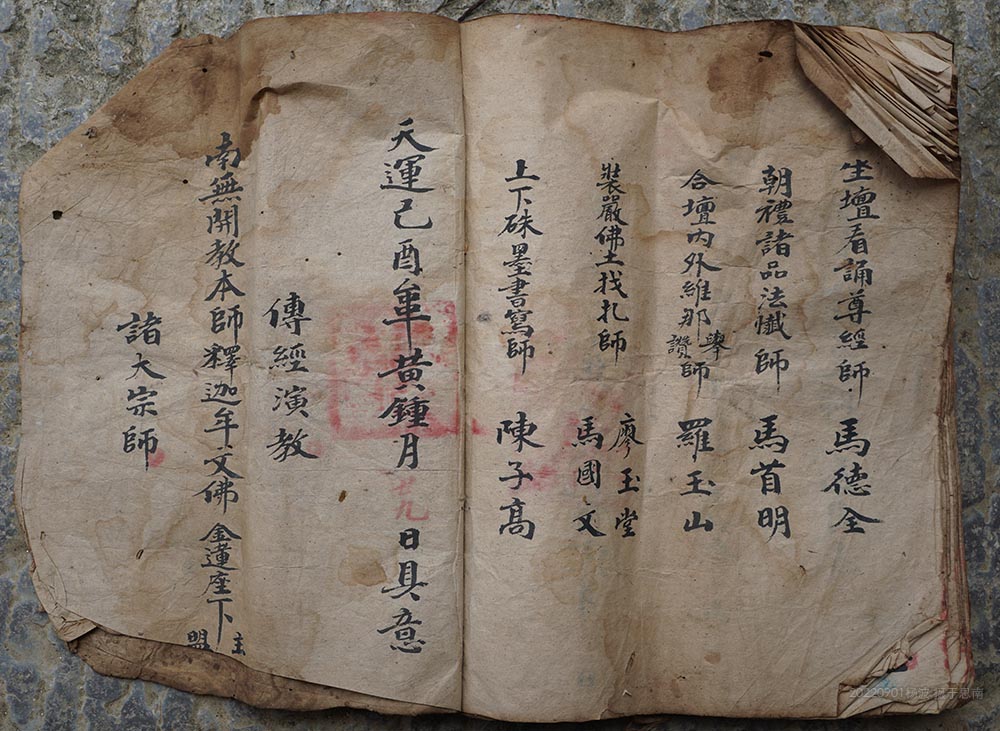 坐壇看誦尊經師 馬德全
朝禮諸品法懺師 馬首明
合壇內外維那舉讚師 羅玉山
裝嚴佛土找扎師 廖玉堂 馬國文
上下硃墨書寫師 陳子高
天運己酉年黃鍾月十九日具意
傳經演教
南無開教本師釋迦年文佛金蓮座下主盟
諸大宗師
20220901杨波 摄于思南